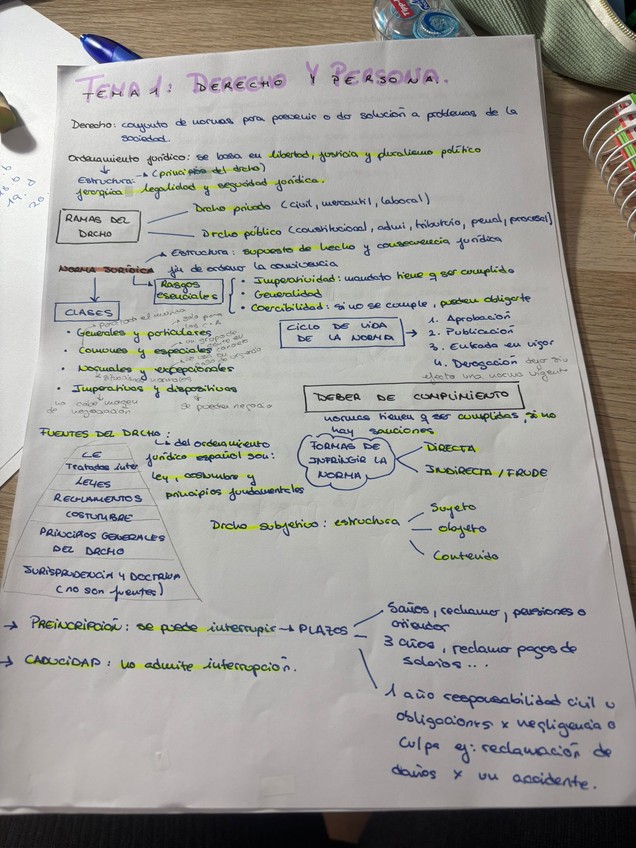 TEMA 1: DERECHO Y PERSONA.
Derecho: conjunto de normas para prevenir o dar solución a problemas de la
sociedad.
Ordenamiento jurídico: se basa en libertad, justicia y pluralismo político
Estructura: → (principios del drcho)
jerarquica legalidad y seguridad jurídica.
RAMAS DEL
DRCHO
Drcho privado (civil, mercantil, laboral)
Drcho público (constitucional, admi, tributario, penal, procesal)
NORMA JURÍDICA
Estructura: supuesto de hecho y consecuencia jurídica
fin de ordenar la convivencia
Rasgos
esenciales
• Imperatividad: mandato tiene q ser cumplido
• Generalidad
• Coercibilidad: si no se cumple, pueden obligarte
CLASES
• Generales y particulares
• Comunes y especiales
• Normales y excepcionales
situaciones normales
• Imperativas y dispositivas
no cabe margen
de negociación
se puede negocia
CICLO DE VIDA
DE LA NORMA
1. Aprobación
2. Publicación
3. Entrada en vigor
4. Derogación dejar sin
efecto una norma vigente
DEBER DE CUMPLIMIENTO
normas tienen q ser cumplidas, si no
hay sanciones
FORMAS DE
INFRINGIR LA
NORMA
DIRECTA
INDIRECTA / FRUDE
FUENTES DEL DRCHO:
del ordenamiento
jurídico español son:
ley, costumbre y
principios fundamentales
CE
Tratados inter
LEYES
REGLAMENTOS
COSTUMBRE
PRINCIPIOS GENERALES
DEL DRCHO
JURISPRUDENCIA Y DOCTRINA
(no son fuentes)
Drcho subjetivo: estructura
Sujeto
objeto
Contenido
→ PREINCRIPCIÓN: se puede interrumpir → PLAZOS
5 años, reclamar, pensiones o
3 años, reclamo pagos de
salarios...
1 año responsabilidad civil u
obligaciones x negligencia o
culpa ej: reclamación de
daños x un accidente.
→ CADUCIDAD: no admite interrupción.